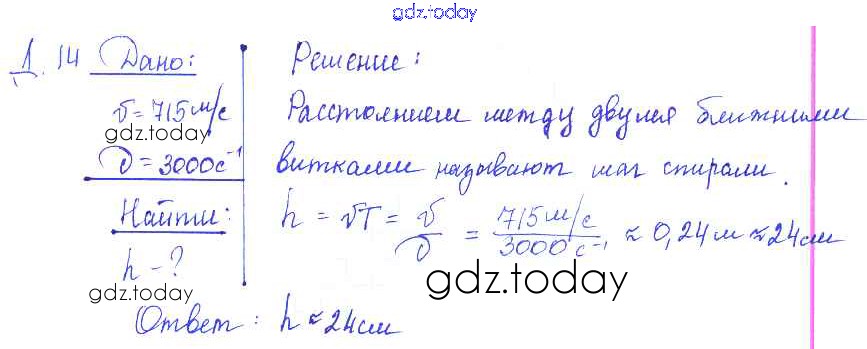 gdz.today
Д. 14 Дано:
υ = 715 м/с
gdz.today
ν = 3000 с⁻¹
Найти:
h - ?
gdz.today
Решение:
Расстоянием между двумя ближними
витками называют шаг спирали.
h = υT = υ/ν = 715 м/с / 3000 с⁻¹ ≈ 0,24 м ≈ 24 см
gdz.today
Ответ: h ≈ 24 см